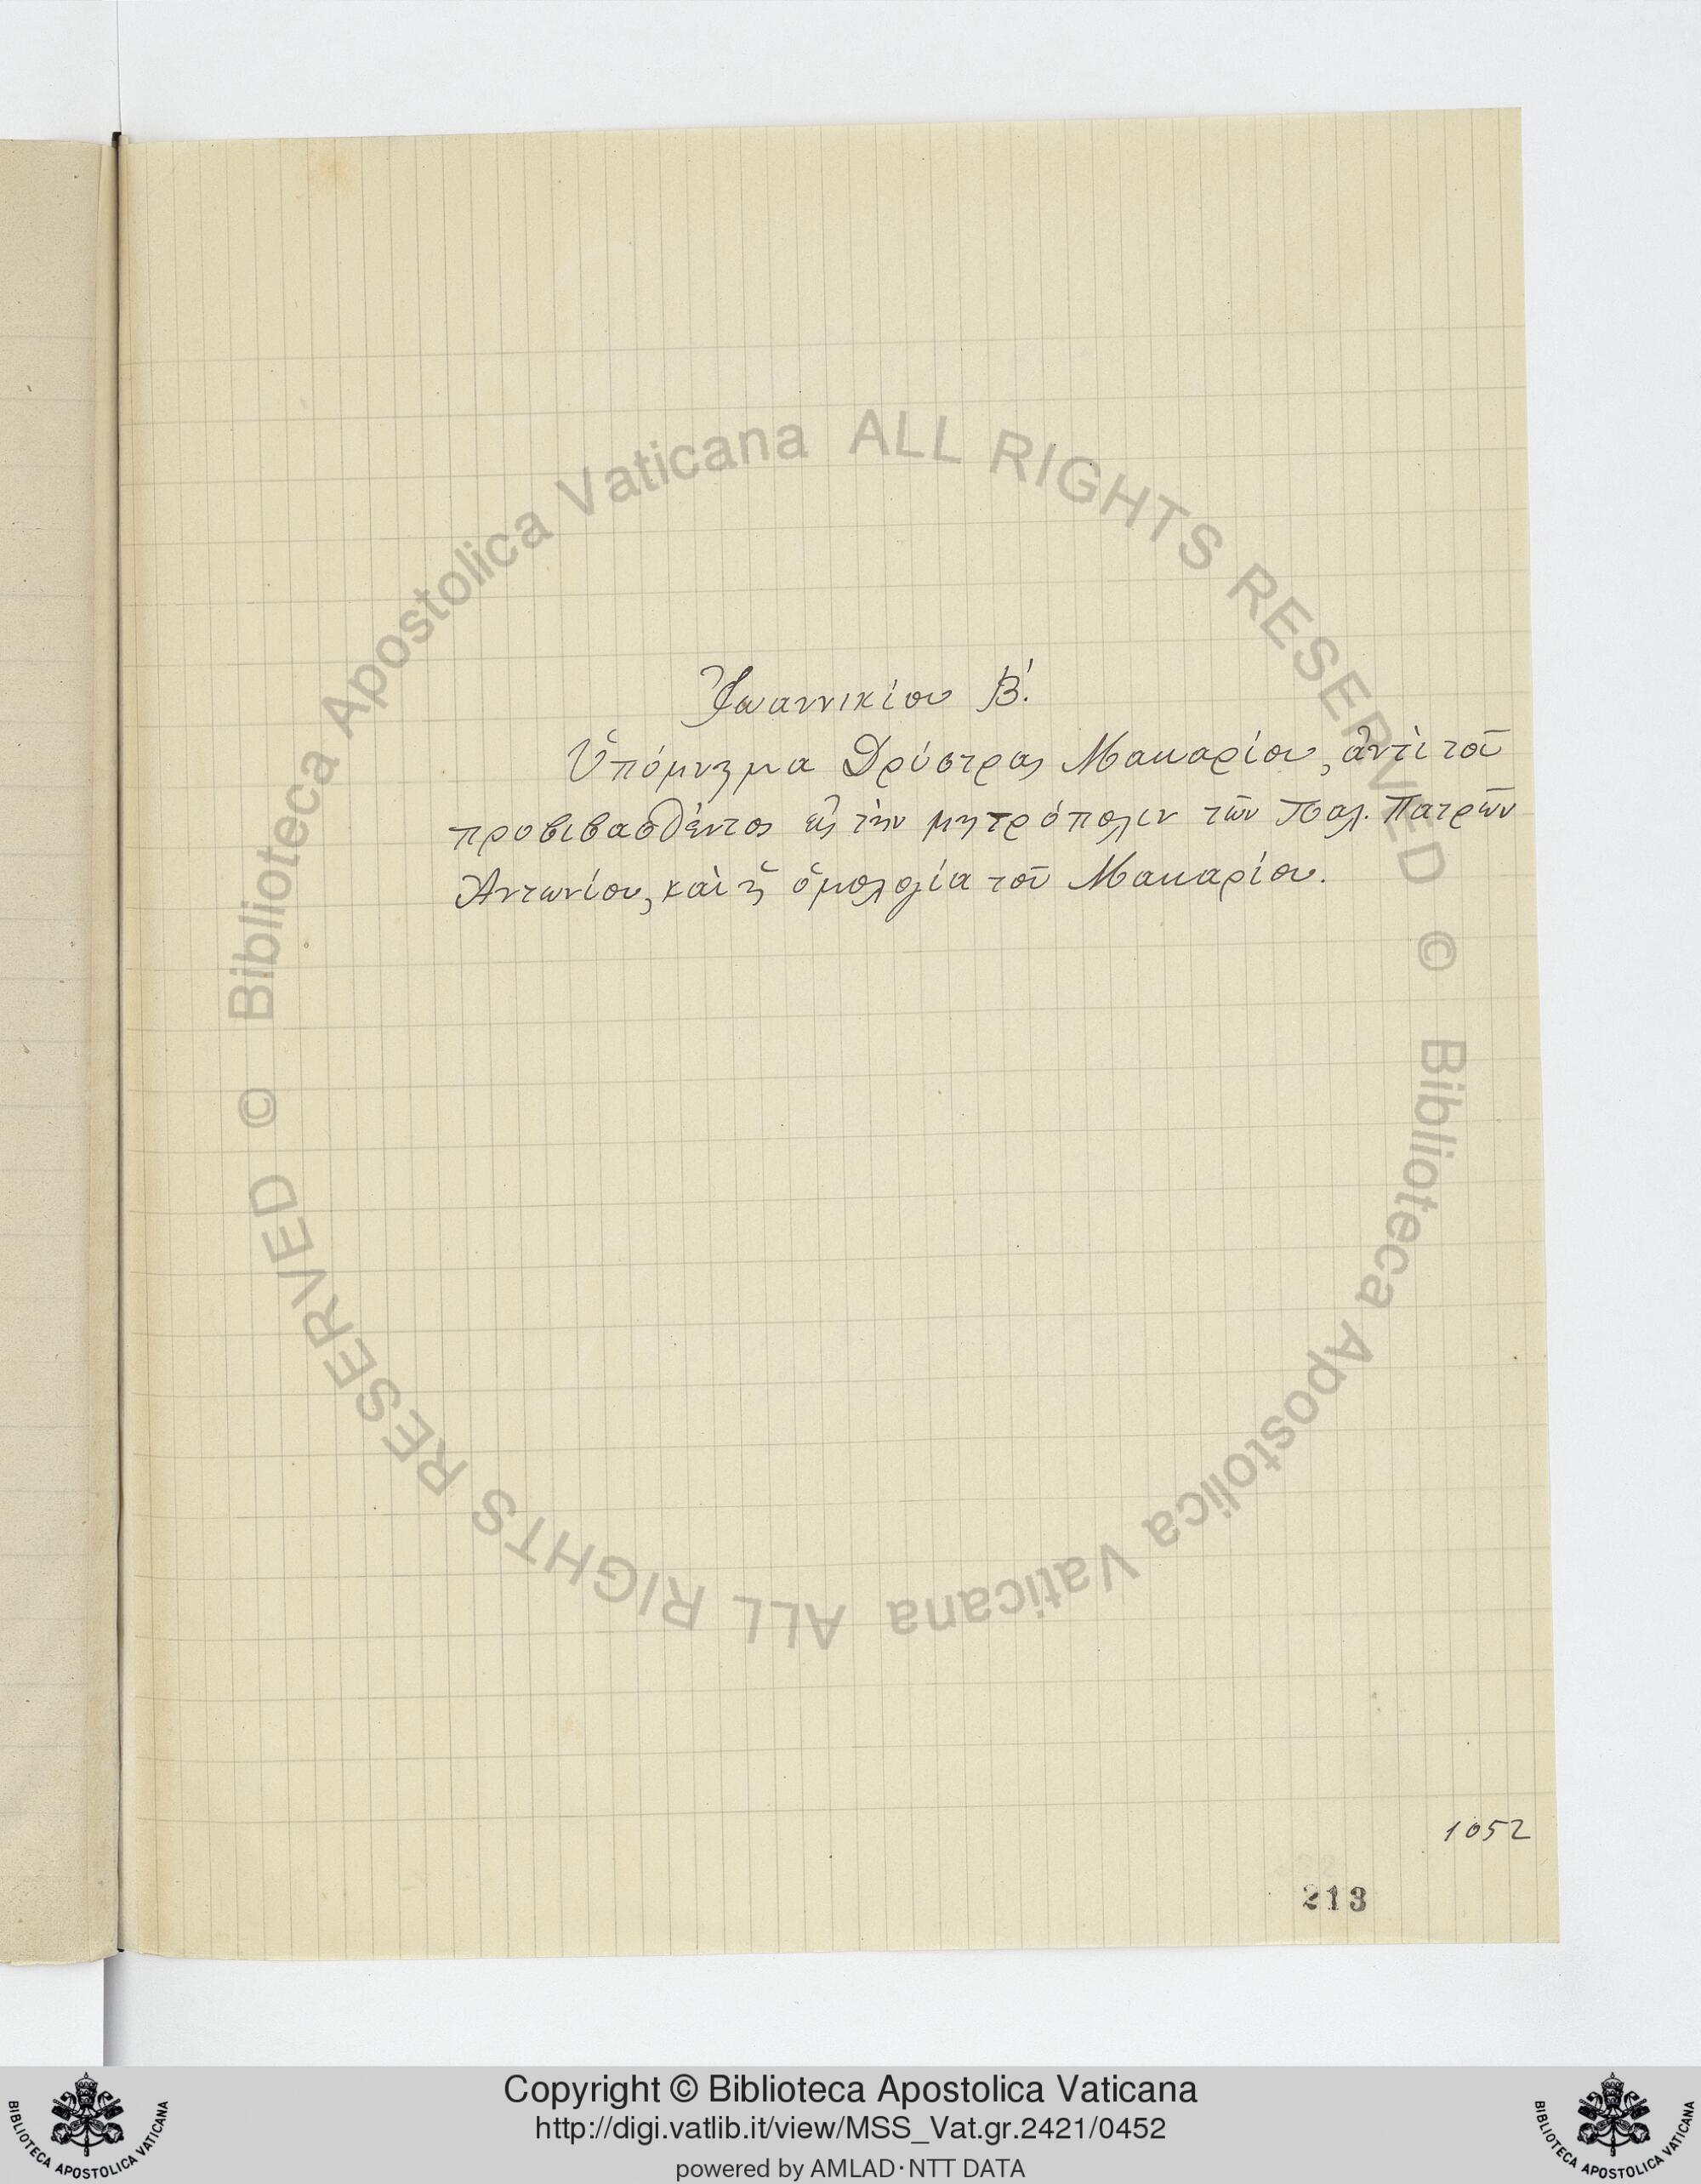 Ἰωαννικίου Βʹ.
Ὑπόμνημα Δρύστρας Μακαρίου, ἀντὶ τοῦ
προβιβασθέντος εἰς τὴν μητρόπολιν τῶν Παλ. Πατρῶν
Ἀντωνίου, καὶ ἡ ὁμολογία τοῦ Μακαρίου.
1052
213
© Biblioteca Apostolica Vaticana ALL RIGHTS RESERVED
© Biblioteca Apostolica Vaticana ALL RIGHTS RESERVED
Copyright © Biblioteca Apostolica Vaticana
http://digi.vatlib.it/view/MSS_Vat.gr.2421/0452
powered by AMLAD·NTT DATA
BIBLIOTECA APOSTOLICA VATICANA
BIBLIOTECA APOSTOLICA VATICANA